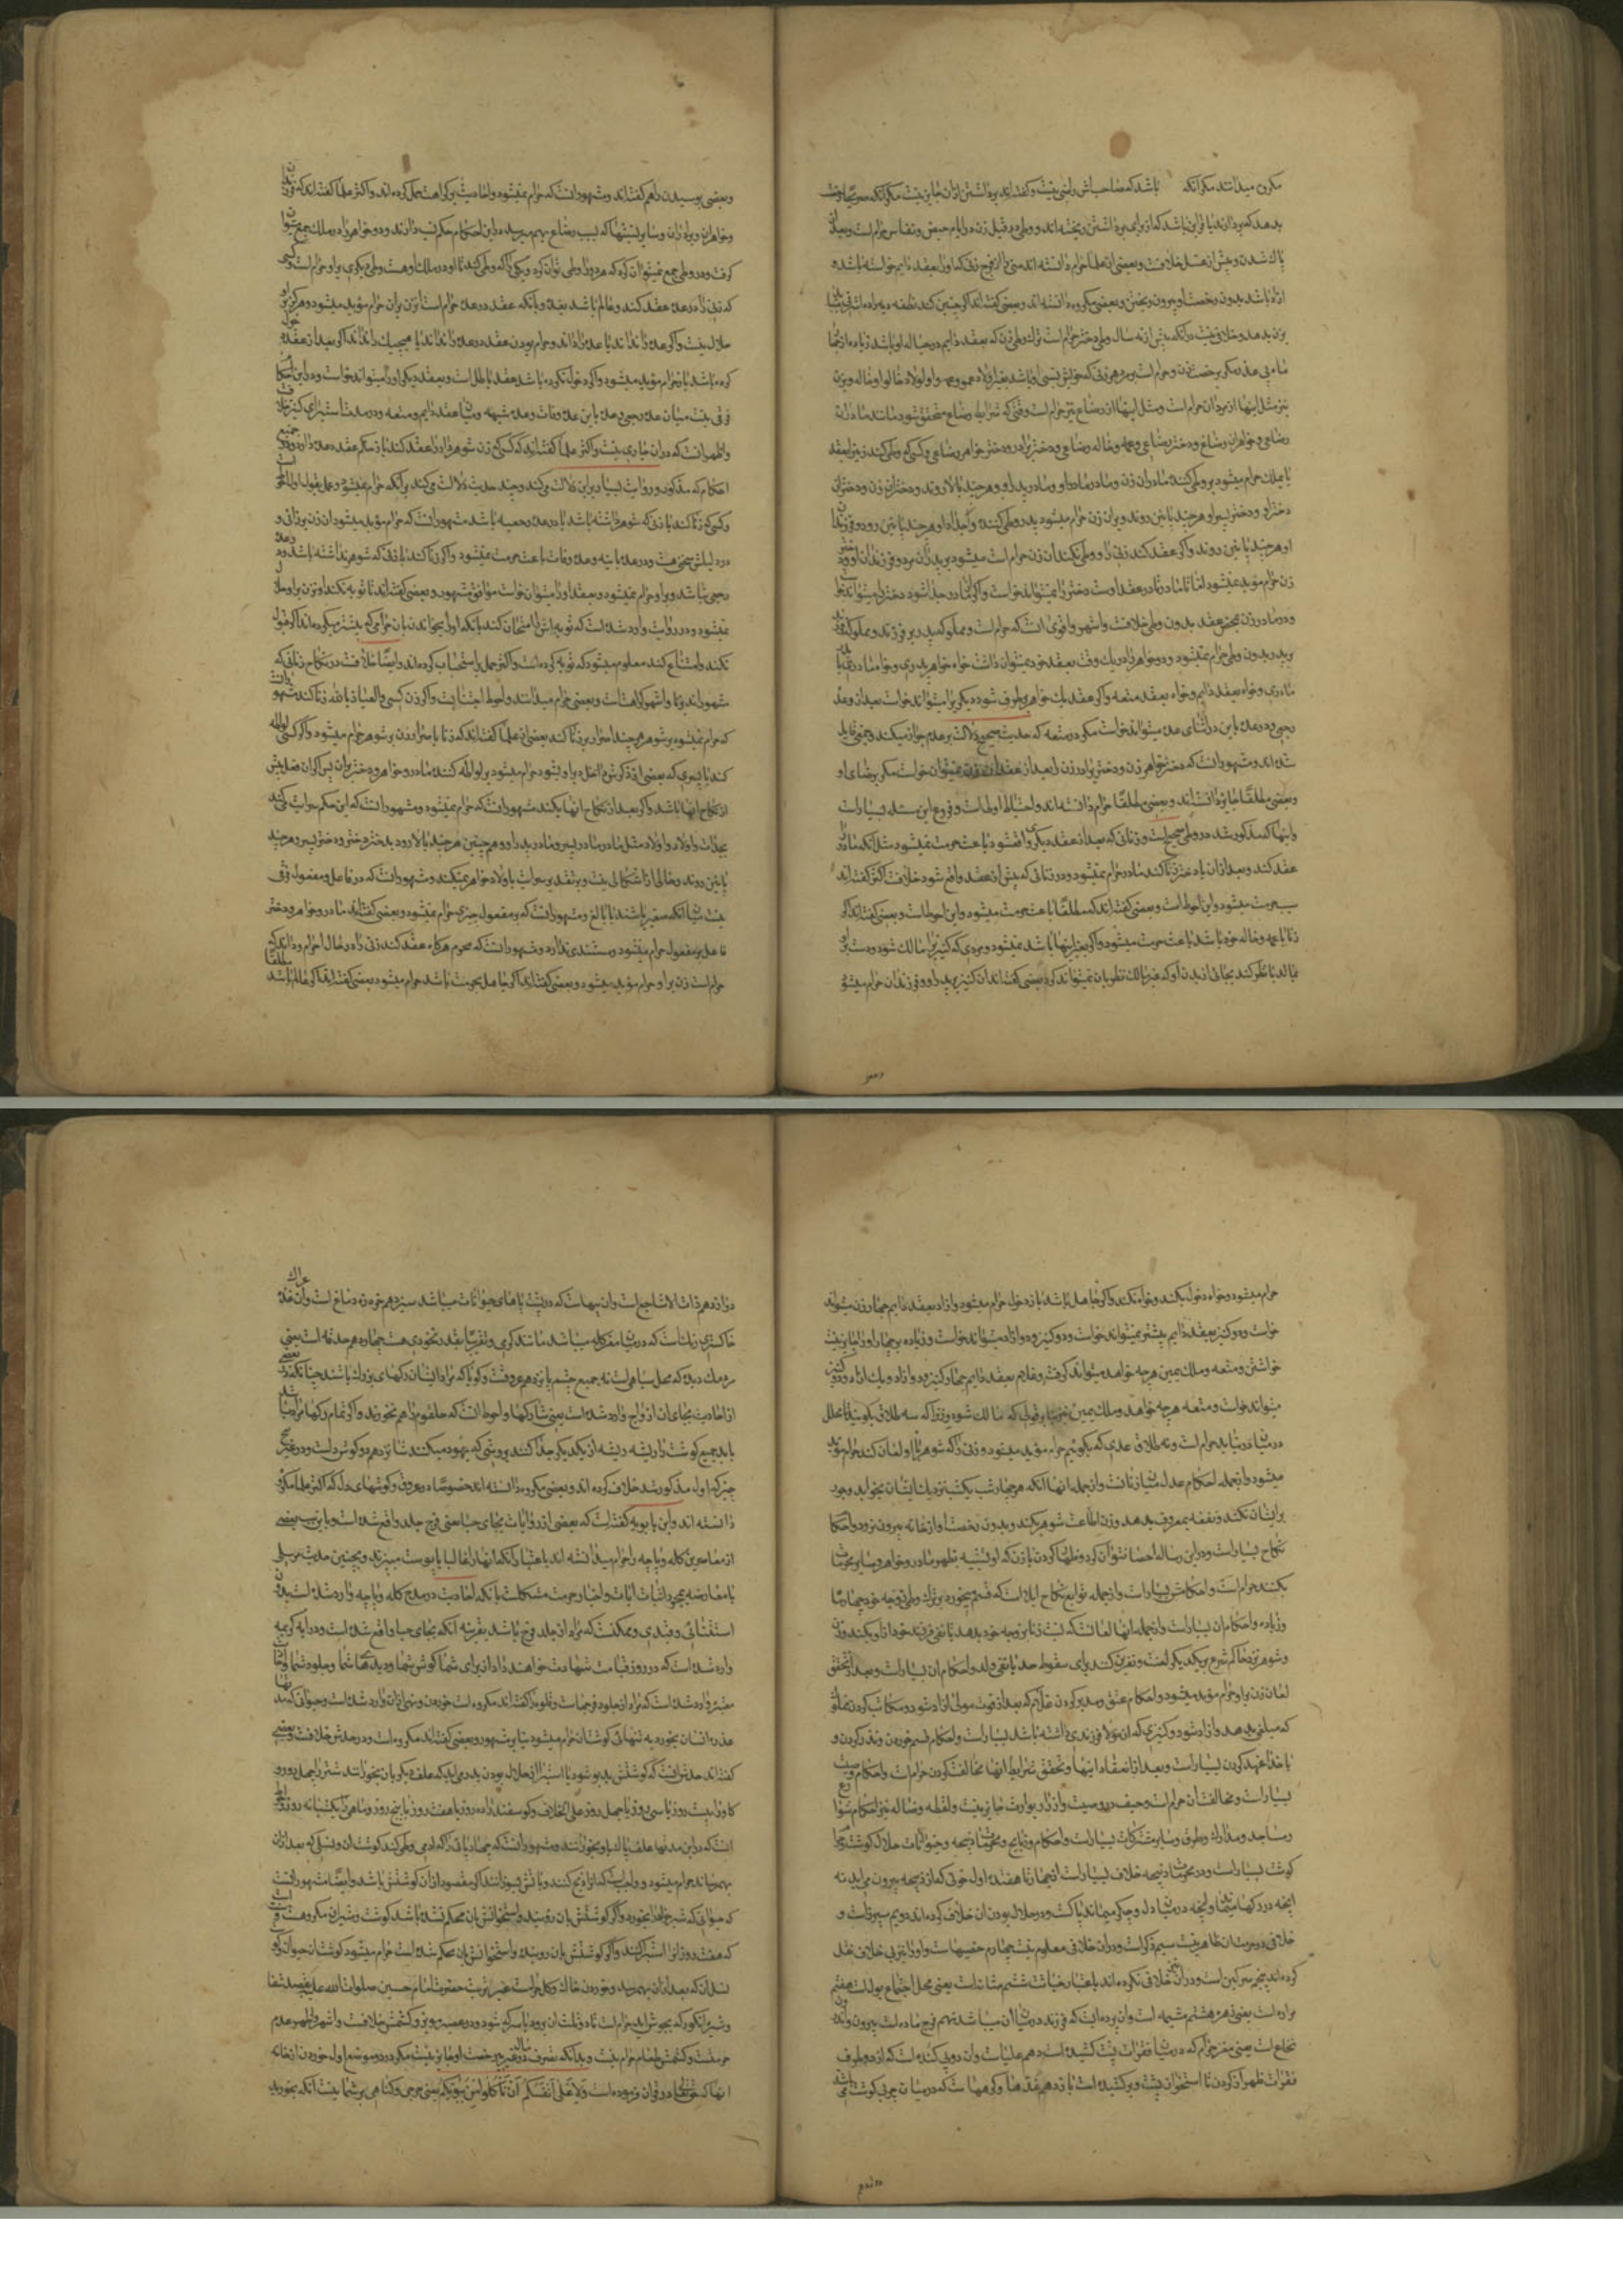 مکروه میدانند مکر آنکه باشد که صاحبانش راضی نیست و کفته‌اند برداشتن ازان جایز نیست مکر آنکه
بدهد که بردارند یا قراین باشد که از برای برداشتن ریخته‌اند و وطی در قبل زن در ایام حیض و نفاس حرام است و بعد از
پاک شدن و پیش از غسل خلافست و بعضی از علما حرام دانسته‌اند منی را از فرج زنی که اورا بعقد دایم خواسته باشد و
ازاد باشد بدون رخصت او بیرون ریختن و بعضی مکروه دانسته‌اند و بعضی کفته‌اند اکر چنین کند نطفه دیه
بزن بدهد و خلافی نیست در آنکه پیش از نه سال وطی دختر حرام است و ترک وطی زن که بعقد دایم در حباله او باشد زیاده از چهار
ماه بی عذر مکر برخصت زن حرام است و بر مرد هر زنی که خویش نسبی او باشد بغیر اولاد عمو و عمه و اولاد خالو و خاله و بر زن
نیز مثل اینها از مردان حرام است و مثل اینها از رضاع نیز حرام است وقتی که شرایط رضاع متحقق شود مانند مادران
رضاعی و خواهران رضاعی و دختر رضاعی و عمه و خاله رضاعی و دختر برادر و دختر خواهر رضاعی و کسی که وطی کند زنیرا بعقد
یا بملک حرام میشود بر وطی کننده مادران زن و مادر مادر او و مادر پدر او و هر چند بالا روند و دختران زن و دختران
دختر او و دختر پسر او هر چند پایین روند و بر آن زن حرام میشود پدر وطی کننده و اجداد او هر چند
او هر چند پایین روند و اکر عقد کند زنی را و وطی نکند آن زن حرام است میشود بر پدر آن مرد و فرزندان او و دختر
زن حرام مؤبد نمیشود اما تا مادر در عقد اوست دختر را نمیتواند خواست و اکر از مادر جدا شود دختر را میتواند خواست
و در مادر زن بمحض عقد بدون وطی خلافست و اشهر و اقوی آنست که حرام است و مملوکه پدر بر فرزند و مملوکه فرزند
بر پدر بدون وطی حرام نمیشود و دو خواهر را در یک وقت بعقد خود نمیتوان داشت خواه خواهر پدری و خواه مادری
مادری و خواه بعقد دایم و خواه بعقد متعه و اکر عقد یک خواهر بر طرف شود دیکری را میتواند خواست بعد از عده
رجعی و در عده باین در اثنای عده میتواند خواست مکر در متعه که حدیث صحیح دلالت بر عدم جواز میکند و جمعی قایل
شده‌اند و مشهور آنست که دختر خواهر زن و دختر برادر زن را بعد از عقد آن زن نمیتوان خواست مکر برضای او
و بعضی مطلقا جایز دانسته‌اند و بعضی مطلقا حرام دانسته‌اند و احتیاط اولی است و فروع این مسئله بسیار است
و اینها که مذکور شد در وطی صحیح است و زنائی که بعد از عقد دیکری واقع شود باعث حرمت نمیشود مثل آنکه مادر را
عقد کند و بعد از ان با دختر زنا کند مادر حرام نمیشود و در زنائی که پیش از عقد واقع شود خلافست اکثر کفته‌اند
سبب حرمت میشود و این احوط است و بعضی کفته‌اند که مطلقا باعث حرمت میشود و این احوط است و بعضی کفته‌اند اکر
زنا با عمه و خاله خود باشد باعث حرمت میشود و اکر بغیر اینها باشد نمیشود و مردی که کنیزیرا مالک شود و دست
بمالد یا نظر کند بجائی از بدن او که غیر مالک نظر بآن نمیتواند کرد بعضی کفته‌اند آن کنیز بر پدر او و فرزندان حرام میشود
و بعضی بوسیدن را هم کفته‌اند و مشهور آنست که حرام نمیشود و احادیث بر کراهت حمل کرده‌اند و اکثر علما کفته‌اند که
و خواهران و برادران و سایر نسبتها که بسبب رضاع بهم میرسد در این احکام حکم نسب دارند و دو خواهر را در ملک جمع میتوان
کرفت و در وطی جمع نمیتوان کرد که هر دو را وطی توان کرد و یکی را که وطی کند تا او در ملک او هست وطی دیکری بر او حرام است و کسی
که زنی را در عده عقد کند و عالم باشد بعده و بآنکه عقد در عده حرام است آن زن بر آن حرام مؤبد میشود و هرکز
حلال نیست و اکر عده را نداند یا عده را داند و حرام بودن عقد در عده را نداند یا هیچیک را نداند اکر بعد از عقد
کرده باشد باز حرام مؤبد میشود و اکر دخول نکرده باشد عقد باطل است و بعقد دیکر او را میتواند خواست و در این احکام
فرقی نیست میان عده رجعی و عده باین و عده وفات و عده شبهه و میان عقد دایم و متعه و در مدت استبرای کنیز
و اظهر آنست که در آن جاری نیست و اکثر علما کفته‌اند که کسی زن شوهر دار را عقد کند باز حکم عقد در عده دارد
احکام که مذکور شد و روایت بسیار بر این دلالت میکند و چند حدیث دلالت میکند بر آنکه حرام نمیشود و عمل بقول اول
و کسی که زنا کند با زنی که شوهر داشته باشد یا در عده رجعیه باشد مشهور آنست که حرام مؤبد میشود آن زن بر زانی و
در دلیلش سخن هست و در عده باینه و عده وفات باعث حرمت نمیشود و اکر زنا کند با زنی که شوهر نداشته باشد و در
رجعی نباشد بر او حرام نمیشود و بعقد او را میتوان خواست موافق مشهور و بعضی کفته‌اند تا توبه نکند آن زن بر او حلال
نمیشود و در روایت وارد شده است که توبه‌اش را امتحان کند بآنکه او را بخواند بآن حرامی که پیشتر میکرده‌اند اکر قبول
نکند و امتناع کند معلوم میشود که توبه کرده است و اکثر حمل بر استحباب کرده‌اند و ایضا خلافست در نکاح زنانی که
مشهورند بزنا و اشهر کراهتست و بعضی حرام میدانند و احوط اجتنابست و اکر زن کسی و العیاذ بالله زنا کند مشهور
که حرام نمیشود بر شوهر هر چند اصرار بر زنا کند بعضی از علما کفته‌اند که زنا با اصرار زن بر شوهر حرام میشود و اکر کسی لواطه
کند با پسری که بعضی از ذکرش داخل دبر او بشود حرام میشود بر لواطه کننده مادر و خواهر و دختر آن پسر
از نکاح اینها باشد و اکر بعد از نکاح اینها بکند مشهور آنست که حرام نمیشود و مشهور آنست که این حکم سرایت میکند
بجدات و اولاد اولاد مثل مادر مادر پسر و مادر پدر او و همچنین هر چند بالا رود و بدختر دختر و دختر پسر و هر چند
پایین روند و خالی از اشکالی نیست و بر تقدیر سرایت باولاد خواهر نمیکند و مشهور آنست که در فاعل و مفعول فرقی
نیست میان آنکه صغیر باشند یا بالغ و مشهور آنست که بر مفعول چیزی حرام نمیشود و بعضی کفته‌اند مادر و خواهر و دختر
فاعل بر مفعول حرام میشود و مستندی ندارد و مشهور آنست که محرم هرکاه عقد کند زنی را در حال احرام و داند که
حرام است زن بر او حرام مؤبد میشود و بعضی کفته‌اند اکر جاهل بحرمت باشد حرام میشود بعضی کفته‌اند اکر عالم باشد
حرام میشود و خواه دخول بکند و خواه نکند و اکر جاهل باشد باز دخول حرام میشود و ازاد بعقد دایم چهار زن میتواند
خواست و دو کنیز بعقد دایم بیشتر نمیتواند خواست و دو کنیز و دو ازاد میتواند خواست و زیاده بر چهار او را جایز نیست
خواستن و متعه و ملک یمین هر چه خواهد میتواند کرفت و غلام بعقد دایم چهار کنیز و دو ازاد و یک ازاد و دو کنیز
میتواند خواست و متعه هر چه خواهد و ملک یمین نیز که مالک شود و زنرا که سه طلاق بکویند
در میان در نیاید حرام است و نه طلاق عدی که بکویم حرام مؤبد میشود و زنی را که شوهر با او لعان کند حرام مؤبد
میشود و از جمله احکام عدل میان زنانست و از جمله آنها آنکه هر چهار شب یکشب نزدیک ایشان بخوابد و جور
بر ایشان نکند و نفقه بمعروف بدهد و زن اطاعت شوهر بکند و بدون رخصت او از خانه بیرون نرود و احکام
نکاح بسیار است و در این رساله احصا نتوان کرد و ظهار کردن با زن که او را تشبیه بظهر مادر و خواهر و سایر محرمات
بکنند حرام است و احکامش بسیار است و از جمله توابع نکاح ایلا است که قسم بخورد بر ترک وطی زوجه خود چهار ماه
و زیاده و احکام آن بسیار است و از جمله آنها لعانست که نسبت زنا بزوجه خود بدهد یا نفی فرزند خود از او بکند و زن
و شوهر نزد حاکم شرع بر یکدیکر لعنت و نفرین کنند برای سقوط حد یا نفی ولد و احکام آن بسیار است و بعد از تحقق
لعان زن بر او حرام مؤبد میشود و احکام عتق و مدبر کردن غلام که بعد از فوت مولی ازاد شود و مکاتب کردن مملوک
که مبلغی بدهد و ازاد شود و کنیزی که از مولا فرزندی داشته باشد بسیار است و احکام قسم خوردن و نذر کردن و
با خدا عهد کردن بسیار است و بعد از انعقاد اینها و تحقق شرایط آنها مخالفت کردن حرامست و احکام وصیت
بسیار است و مخالفت آن حرام است و حیف در وصیت و آزار بوارث جایز نیست و لقطه و ضاله نیز احکام
مساجد و مدارس و طرق و سایر مشترکات بسیار است و احکام ذبایح و محرمات ذبیحه و حیوانات حلال کوشت
کوشت بسیار است و در محرمات ذبیحه خلاف بسیار است از چهار تا هفده اول خونی که از ذبیحه بیرون می‌آید نه
آنچه در رکها میماند و آنچه در میان دل و جکر میماند پاک است و در حلال بودن آن خلاف کرده‌اند دویم سپرز است و
خلافی در حرمت آن ظاهر نیست سیم ذکر است و در آن خلافی معلوم نیست چهارم خصیها است و او را نیز بی خلاف نقل
کرده‌اند پنجم سرکین است و در آن خلافی نکرده‌اند باعتبار خباثت ششم مثانه است یعنی محل اجتماع بول است هفتم
مراره است یعنی زهره هشتم مشیمه است و آن پرده ایست که فرزند در میان آن میباشد نهم فرج ماده است بیرون و اندرون
نخاع است یعنی مغز حرام که در میان فقرات پشت کشیده است دهم علبا است و آن دو پی کنده است که از دو طرف
فقرات ظهر از کردن تا استخوان پشت و بر کشیده است یازدهم غدها و کرهها است که در میان چربی کوشت
دوازدهم ذات الاشاجع است و آن پیها است که در پشت پاهای حیوانات میباشد سیزدهم خرزه دماغ است و آن غده
خاکستری رنک است که در میان مغز کله میباشد مانند کرمی و تقریبا بقدر نخودی هست چهاردهم حدقه است یعنی
مردمک دیده که محل سیاهی است نه جمیع چشم پانزدهم عروقست و کویا که مراد ایشان رکهای بزرک باشند چنانکه
از احادیث بجای آن اوداج وارد شده است یعنی شاه رکها و احوط آنست که حلقوم را هم نخورند و اکر تمام رکها مراد
باید جمیع کوشت را ریشه ریشه از یکدیکر جدا کنند بروشی که یهود میکنند شانزدهم دو کوش دل است و در غیر پنج
چیز که اول مذکور شد خلاف کرده‌اند و بعضی مکروه دانسته‌اند خصوصا در عروق و کوشهای دل که اکثر علما مکروه
دانسته‌اند و ابن بابویه کفته است که بعضی از روایات بجای حیا یعنی فرج جلد واقع شده است و باین سبب بعضی
از معاصرین کله و پاچه را حرام میدانسته‌اند باعتبار آنکه آنها را غالبا با پوست میپزند و بچنین حدیث مرسلی
با معارضه بعمومات آیات و اخبار حرمت مشکلست با آنکه احادیث در مدح کله و پاچه وارد شده است بدون
استثنائی و قیدی و ممکنست که مراد از جلد فرج باشد بقرینه آنکه بجای حیا واقع شده است و در آیه کریمه
وارد شده است که در روز قیامت شهادت خواهند داد از برای شما کوش شما و دیدهای شما و جلود شما و
مفسر وارد شده است که مراد از جلود فرجهاست و قلوه را کفته‌اند مکروه است خوردن و نهی از آن وارد شده است و حیوانی که
عذره انسان بخورد به تنهائی کوشت آن حرام میشود بنا بر مشهور و بعضی کفته‌اند مکروه است و در حدش خلافست و بعضی
کفته‌اند حدش آنست که کوشتش بدبو شود با استبرا از حلال بودن بدر می‌آید که علف دیکر بآن بخورانند شتر را چهل روز و
کاو را بیست روز یا سی روز یا چهل روز علی الخلاف و کوسفند را ده روز یا هفت روز یا پنج روز و ماهی را یکشبانه روز و
آنست که در این مدتها علف پاک باو بخورانند و مشهور آنست که چهارپایی را که آدمی وطی کند کوشت آن و نسلی که بعد از ان
بهم رساند حرام میشود و واجب است که آنرا ذبح کنند و باتش بسوزانند اکر مقصود از آن کوشتش باشد و ایضا مشهور آنست
که حیوانی که شیر خوک بخورد و اکر کوشتش بآن نروئیده و استخوانش بآن محکم نشده باشد کوشت و شیر آن مکروهست
که هفت روز آنرا استبرا کنند و اکر کوشتش بآن روییده و استخوانش بآن محکم شده است حرام میشود کوشت آن حیوان و کوشت
نسل آن که بعد از ان بهم رسد و خوردن خاک و کل حرامست بغیر تربت حضرت امام حسین صلوات الله علیه بقصد شفا
و شیره انکور که بجوش آید حرام است تا دو ثلث آن برود یا سرکه شود و در عصیر مویز و کشمش خلافست و اشهر و اظهر عدم
حرمتست و کشمش طعام حرام نیست و بدانکه تصرف در مال غیر بی رخصت او جایز نیست مکر در دو موضع اول خوردن از خانه
آنها که حق تعالی در قرآن فرموده است وَلَا عَلَىٰ أَنْفُسِكُمْ أَنْ تَأْكُلُوا مِنْ بُيُوتِكُمْ یعنی حرجی و کناهی بر شما نیست آنکه بخورید